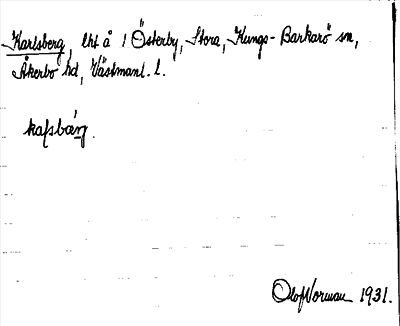 Karlsberg, lht å 1 Österby, Stora, Kungs-Barkarö sn,
Åkerbo hd, Västmanl. l.
kafsbáŋ.
Olof Norman 1931.